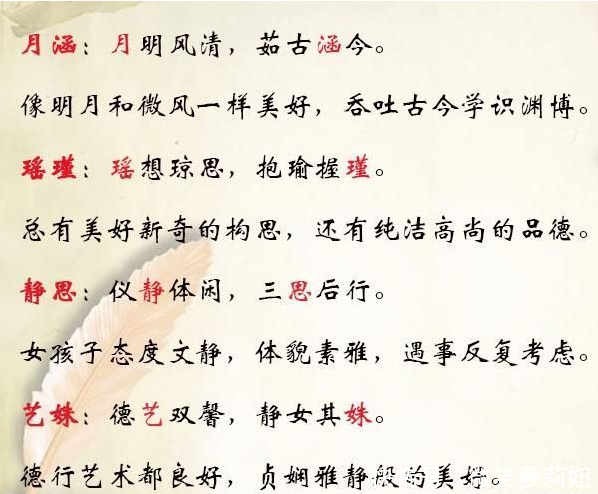 月涵：月明风清，茹古涵今。
像明月和微风一样美好，吞吐古今学识渊博。
瑶瑾：瑶想琼思，抱瑜握瑾。
总有美好新奇的构思，还有纯洁高尚的品德。
静思：仪静体闲，三思后行。
女孩子态度文静，体貌素雅，遇事反复考虑。
艺姝：德艺双馨，静女其姝。
德行艺术都良好，贞娴雅静般的美好。
笑萝莉妞